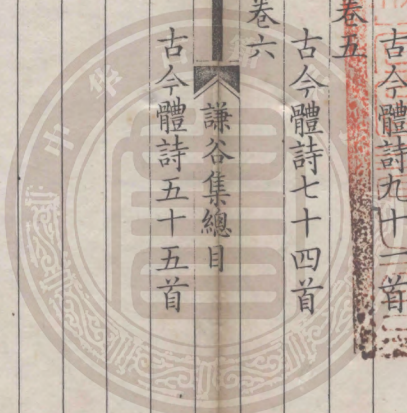 古今體詩九十二首
卷五
古今體詩七十四首
卷六
謙谷集總目
古今體詩五十五首
中華